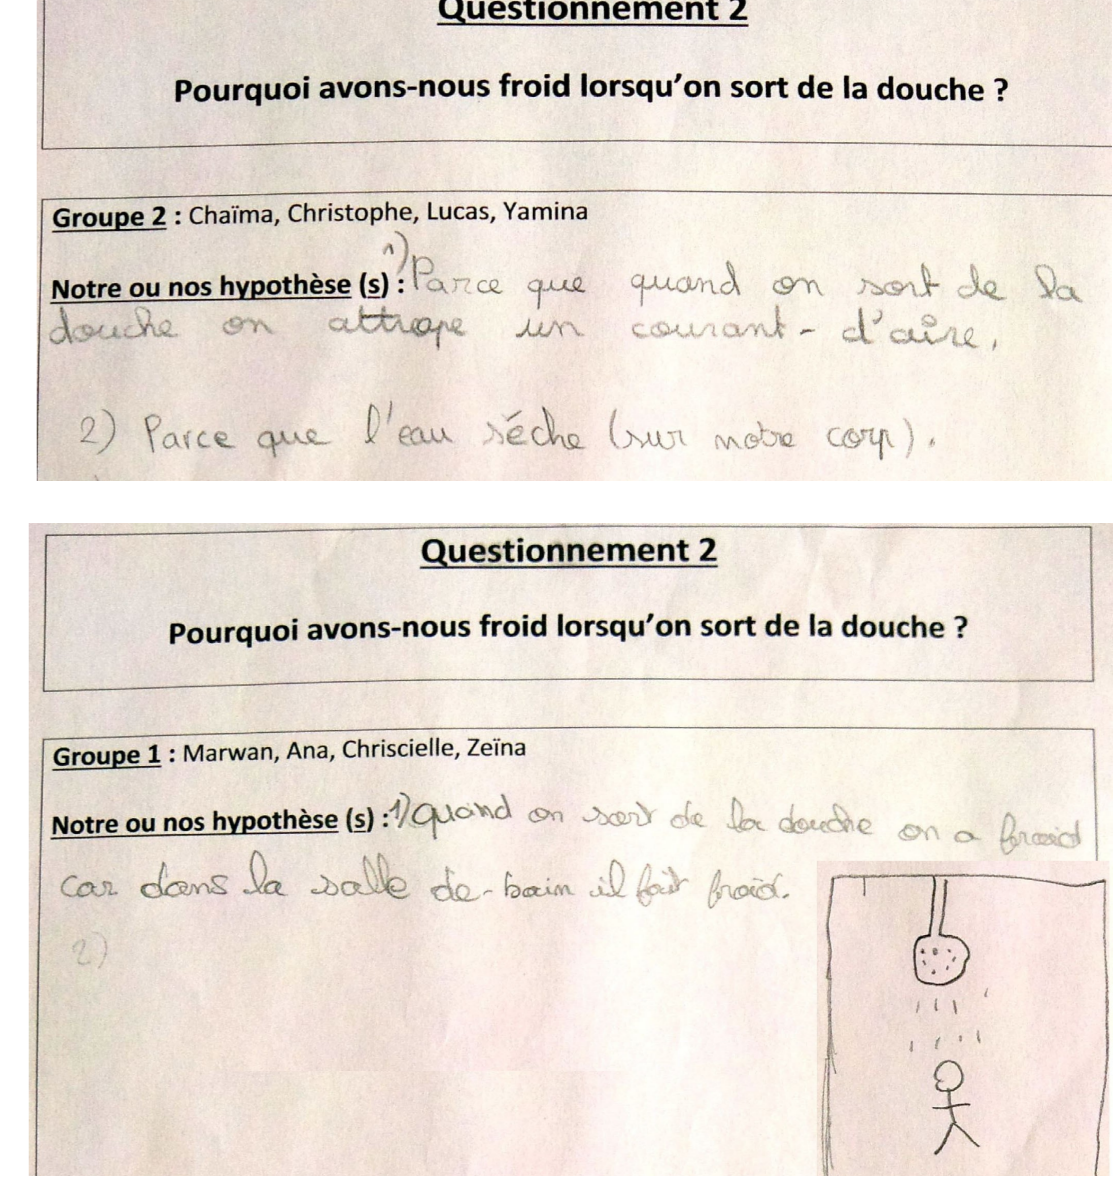 Questionnement 2
Pourquoi avons-nous froid lorsqu'on sort de la douche ?
Groupe 2 : Chaïma, Christophe, Lucas, Yamina
Notre ou nos hypothèse (s) : 1) Parce que quand on sort de la
douche on attrape un courant-d'aîre.
2) Parce que l'eau séche (sur notre corp).
Questionnement 2
Pourquoi avons-nous froid lorsqu'on sort de la douche ?
Groupe 1 : Marwan, Ana, Chriscielle, Zeïna
Notre ou nos hypothèse (s) : 1) Quand on sort de la douche on a froid
car dans la salle de-bain il fait froid.
2)